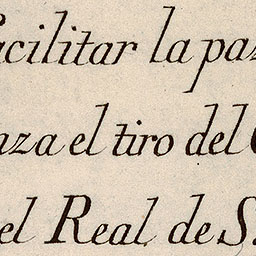 acilitar la paz
nza el tiro del C
el Real de S.